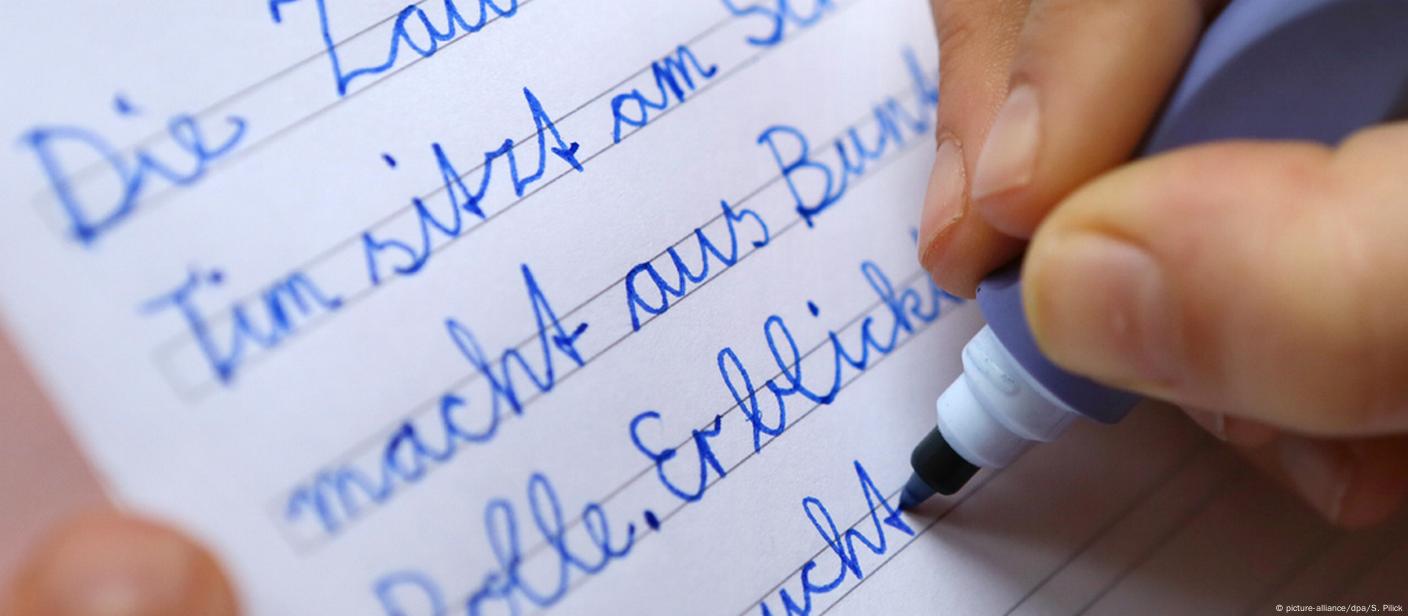 Die Zau
Tim sitzt am Sc
macht aus Bunt
Rolle. Er blick
ucht
© picture-alliance/dpa/S. Pilick